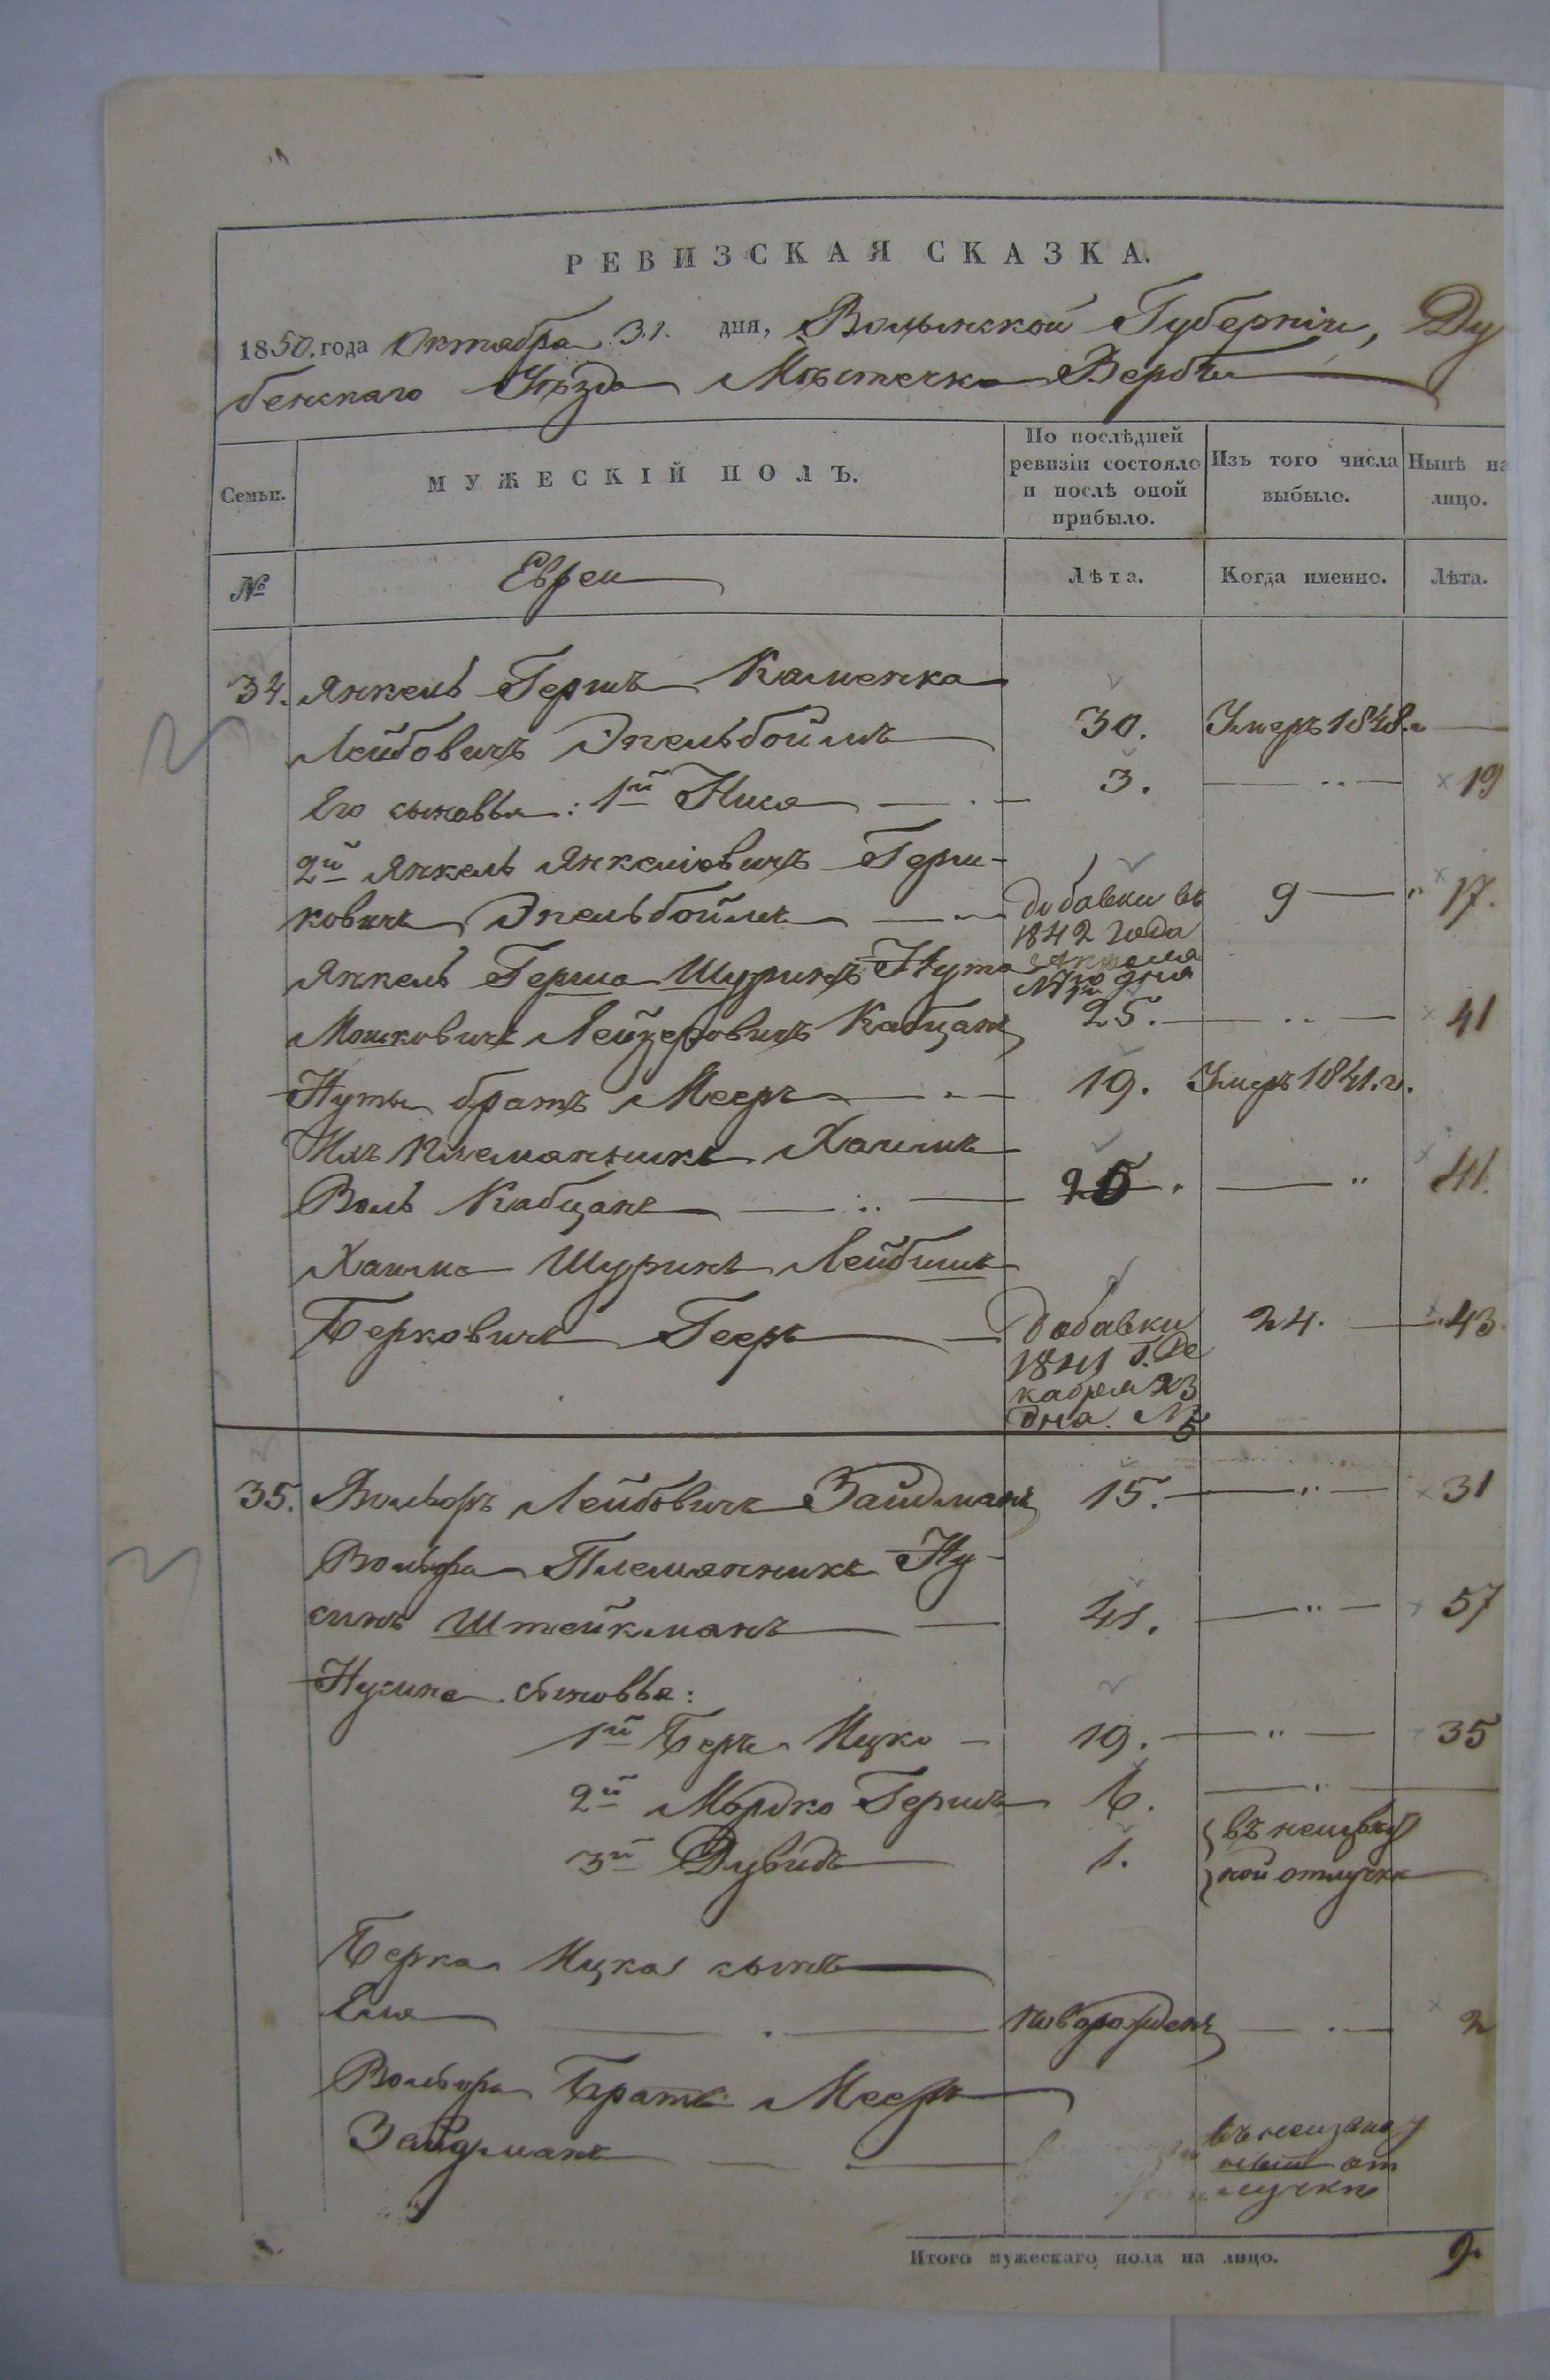 РЕВИЗСКАЯ СКАЗКА.
1850. года Октабра 31. дня, Волынской Губерніи, Ду
бенскаго Уѣзда Мѣстечка Вербы
Семьи.
МУЖЕСКІЙ ПОЛЪ.
По послѣдней ревизіи состояло и послѣ оной прибыло.
Изъ того числа выбыло.
Нынѣ на лицо.
№
Евреи
Лѣта.
Когда именно.
Лѣта.
34. Янкель Гершъ Каменка
Лейбовичъ Эпельбоймъ 30. Умеръ 1848.г
Его сыновья: 1й Нися 3. 19
2й Янкель Янкеліовичъ Герш-
ковичъ Эпельбоймъ добавки въ 9 17.
1842 года
Янкель Герша Шуринъ Нута
дня
Мошковичъ Лейзеровичъ Кабцанъ 25. 41
Нуты братъ Мееръ 19. Умеръ 1841.г.
Ихъ племянникъ Хаимъ
Воль Кабцанъ 25. 41.
Хаима Шуринъ Лейбишъ
Берковичъ Гееръ добавки 24. 43.
1841 г. Де
кабрея 23
дня. № 5
35. Вольфъ Лейбовичъ Зайдманъ 15. 31
Вольфа Племянникъ Ну-
синъ Штейкманъ 41. 57
Нусина сыновья:
1й Беръ Ицко 19. 35
2й Мордко Гершъ 6.
3й Дувидъ 1.
въ неизвѣст
ной отлучкѣ
Берка Ицка сынъ
Еля новорожденъ 2
Вольфа Братъ Мееръ
Зайдманъ
въ неизвѣс
ной от
лучкѣ
Итого мужескаго пола на лицо. 9.